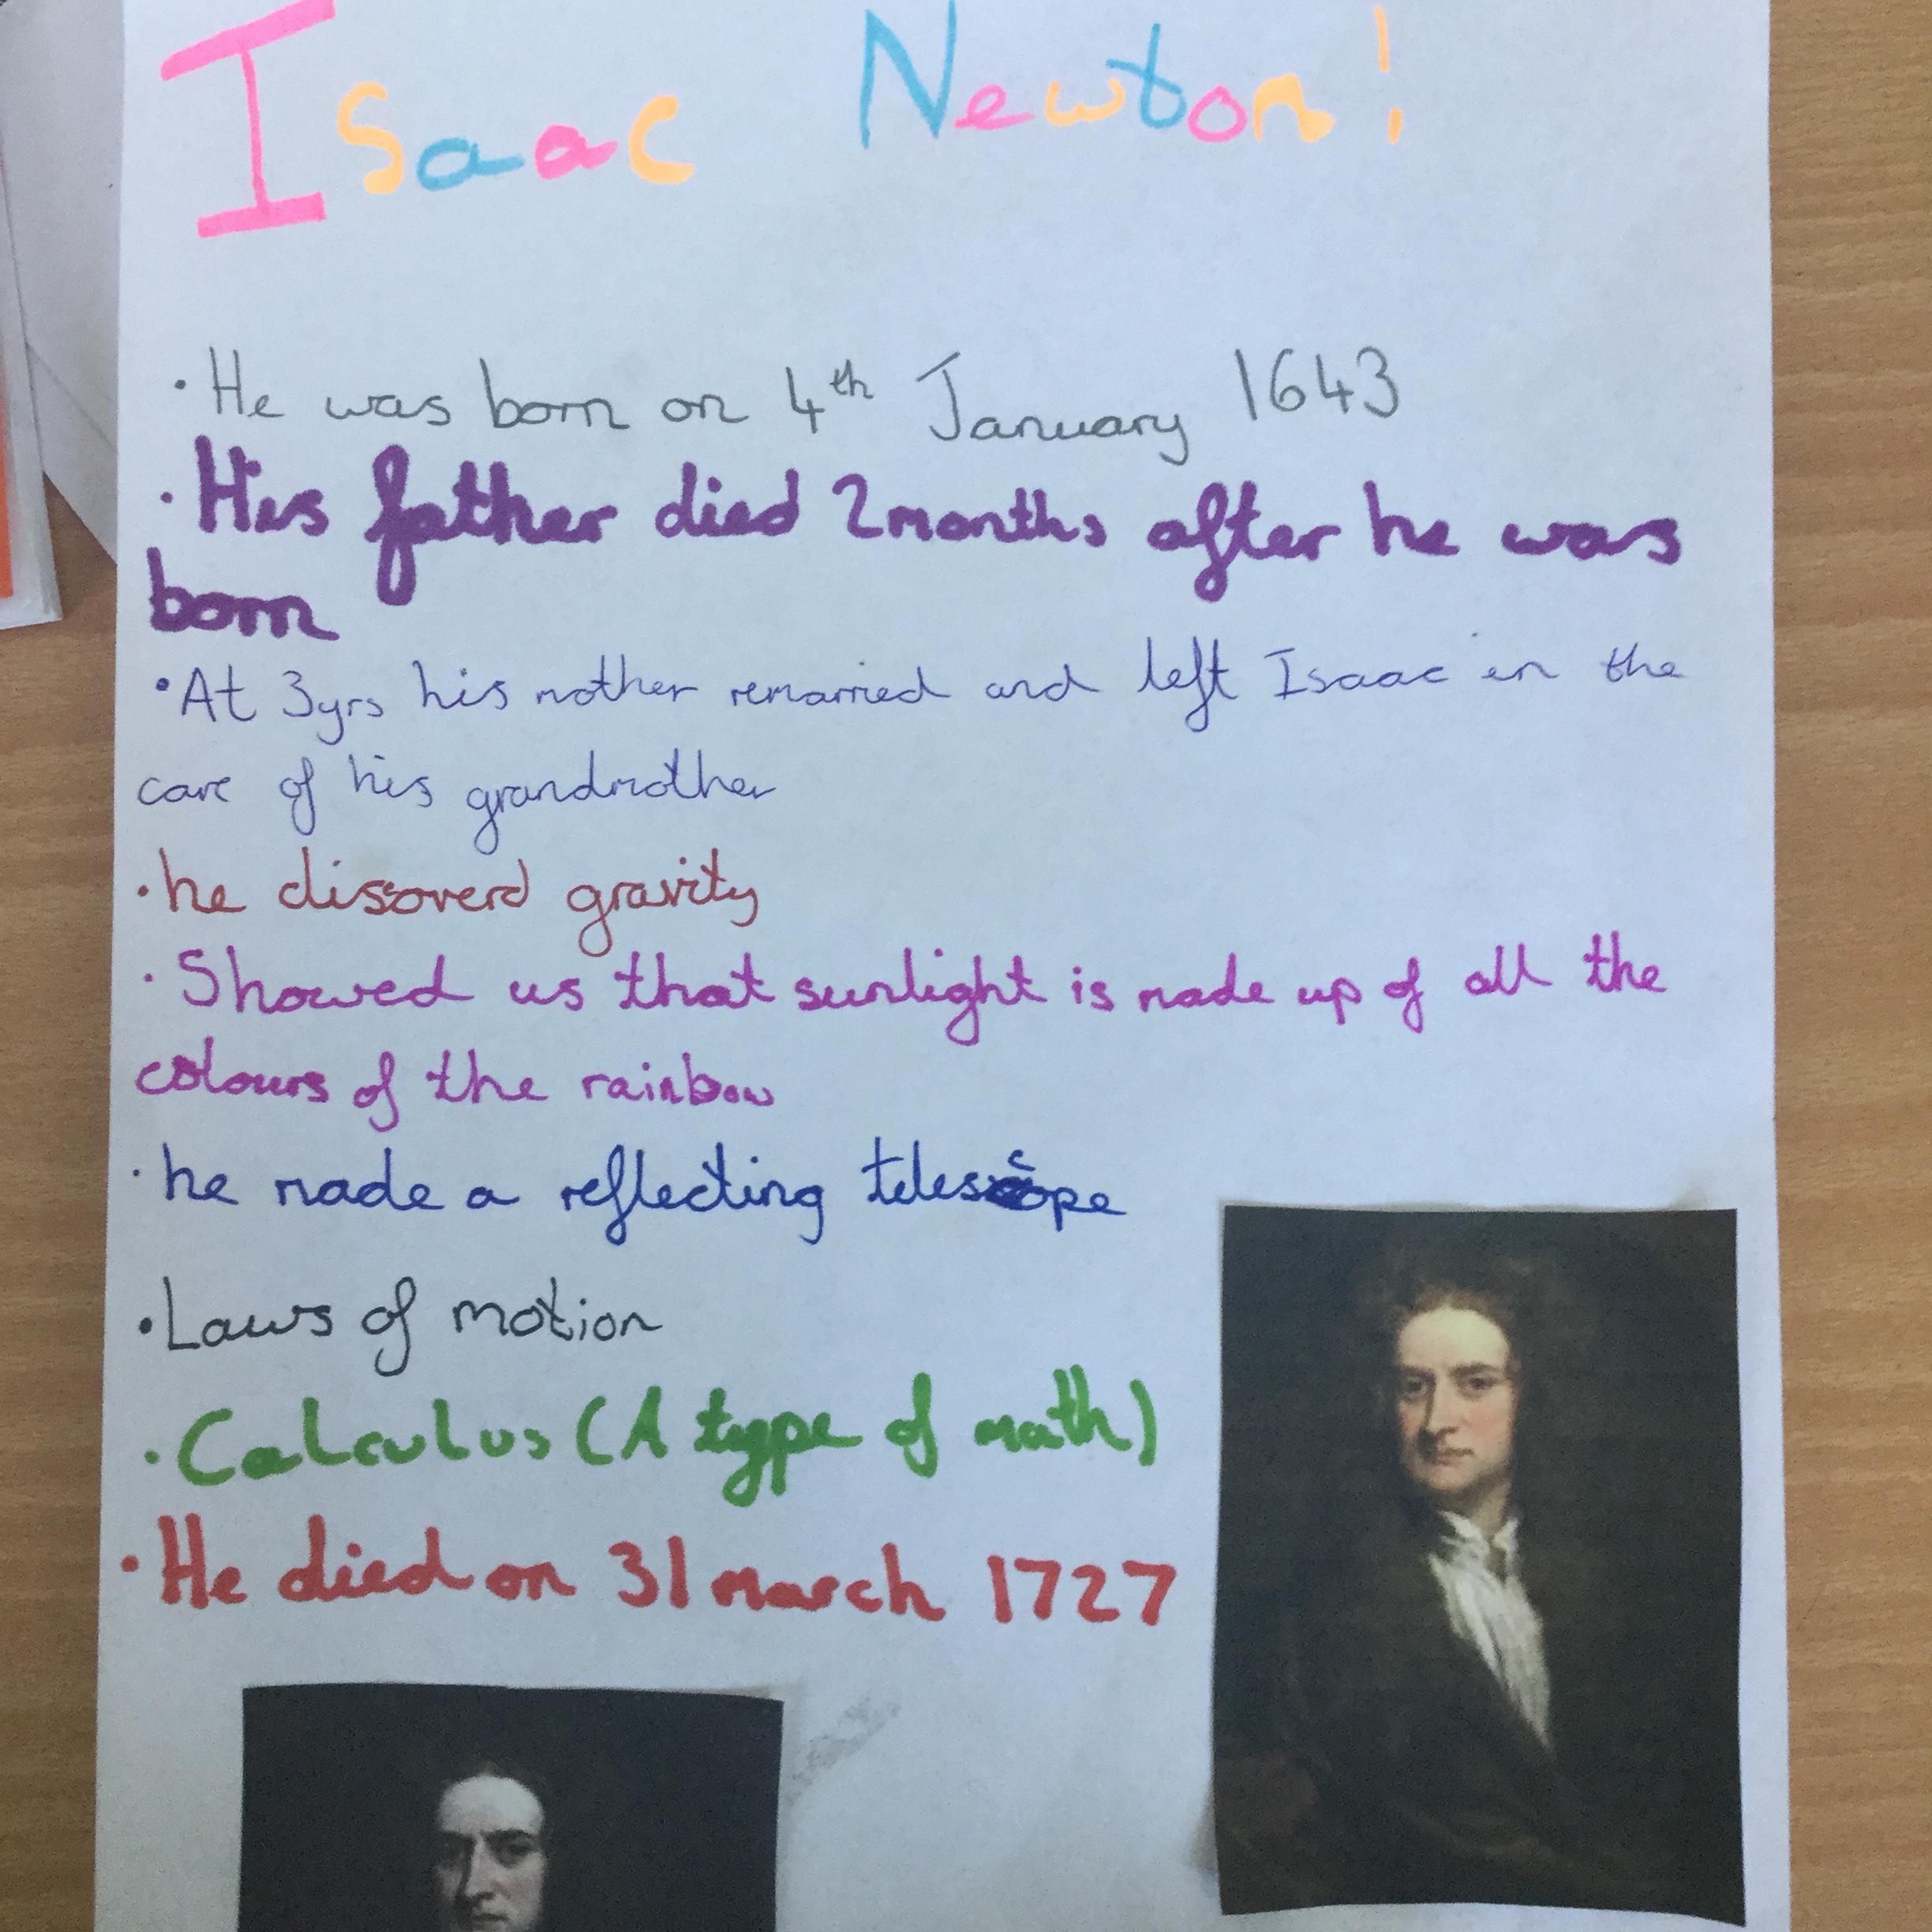 Isaac Newton!
• He was born on 4th January 1643
• His father died 2months after he was
born
• At 3yrs his mother remarried and left Isaac in the
care of his grandmother
• he discoverd gravity
• Showed us that sunlight is made up of all the
colours of the rainbow
• he made a reflecting telescope
• Laws of motion
• Calculus (A type of math)
• He died on 31 march 1727